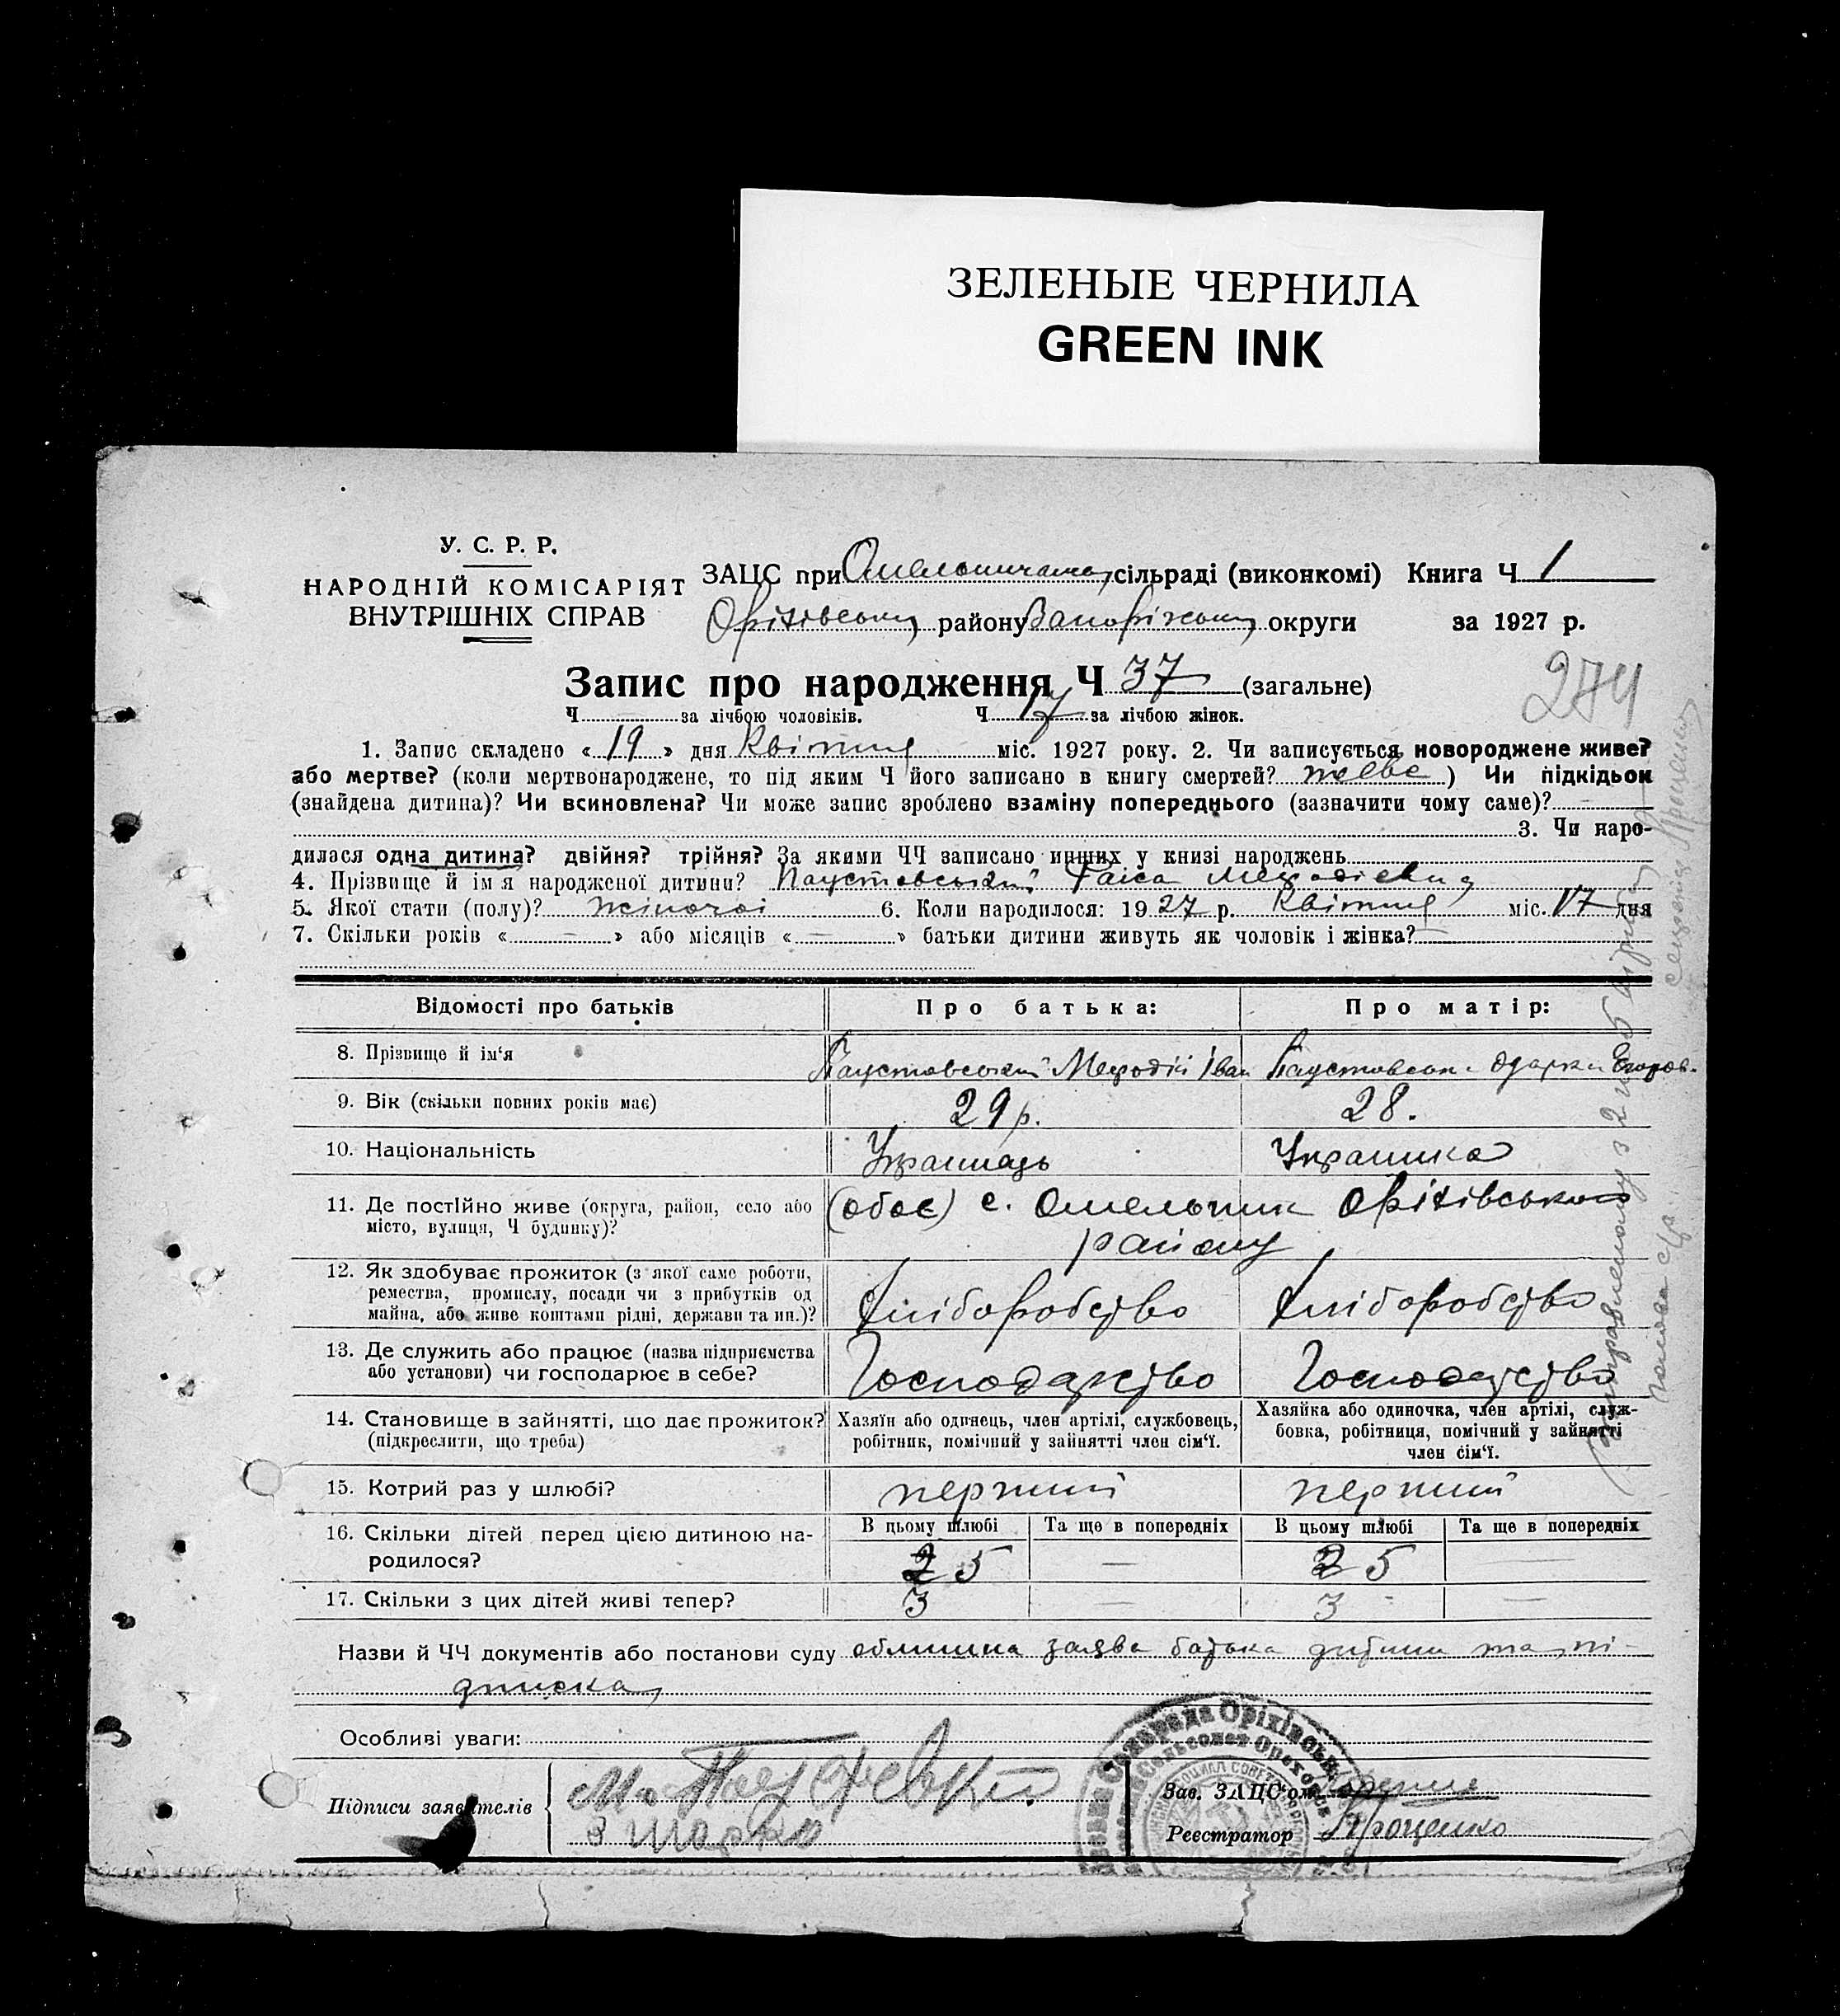 ЗЕЛЕНЫЕ ЧЕРНИЛА
GREEN INK
У. С. Р. Р.
НАРОДНІЙ КОМІСАРІЯТ
ВНУТРІШНІХ СПРАВ
ЗАЦС при сільраді (виконкомі) Книга Ч 1
Оріхівському району Запоріжському округи за 1927 р.
Запис про народження Ч 37 (загальне)
274
Ч за лічбою чоловіків. Ч 17 за лічбою жінок.
1. Запис складено « 19 » дня Квітня міс. 1927 року. 2. Чи записується новороджене живе?
або мертве? (коли мертвонароджене, то під яким Ч його записано в книгу смертей? живе ) Чи підкідьок
(знайдена дитина)? Чи всиновлена? Чи може запис зроблено взаміну попереднього (зазначити чому саме)? —
3. Чи наро-
дилася одна дитина? двійня? трійня? За якими ЧЧ записано инших у книзі народжень
4. Прізвище й імя народженої дитини? Паустовський Раіса Мефодієвна
5. Якої стати (полу)? жіночої 6. Коли народилося: 19 27 р. Квітня міс. 17 дня
7. Скільки років « — » або місяців « — » батьки дитини живуть як чоловік і жінка? —
Відомості про батьків Про батька: Про матір:
8. Прізвище й ім‘я Паустовський Мефодій Іван Паустовська Одарка Егоров.
9. Вік (скільки повних років має) 29 р. 28.
10. Національність Українець Українка
11. Де постійно живе (округа, район, село або (обоє) с. Омельник Оріхівського
місто, вулиця, Ч будинку)? району
12. Як здобуває прожиток (з якої саме роботи,
ремества, промислу, посади чи з прибутків од
майна, або живе коштами рідні, держави та ин.)? Хліборобство Хліборобство
13. Де служить або працює (назва підприємства
або установи) чи господарює в себе? Господарство Господарство
14. Становище в зайнятті, що дає прожиток? Хазяїн або одинець, член артілі, службовець, Хазяйка або одиночка, член артілі, служ-
(підкреслити, що треба) робітник, помічний у зайнятті член сім‘ї. бовка, робітниця, помічний у зайнятті
член сім‘ї.
15. Котрий раз у шлюбі? перший перший
16. Скільки дітей перед цією дитиною на- В цьому шлюбі Та ще в попередніх В цьому шлюбі Та ще в попередніх
родилося? 2 5 — 2 5 —
17. Скільки з цих дітей живі тепер? 3 — 3 —
Назви й ЧЧ документів або постанови суду заява батька дитини та пі-
дписка
Особливі уваги:
Підписи заявителів
Зав. ЗАЦС‘ом
Реєстратор Проценко